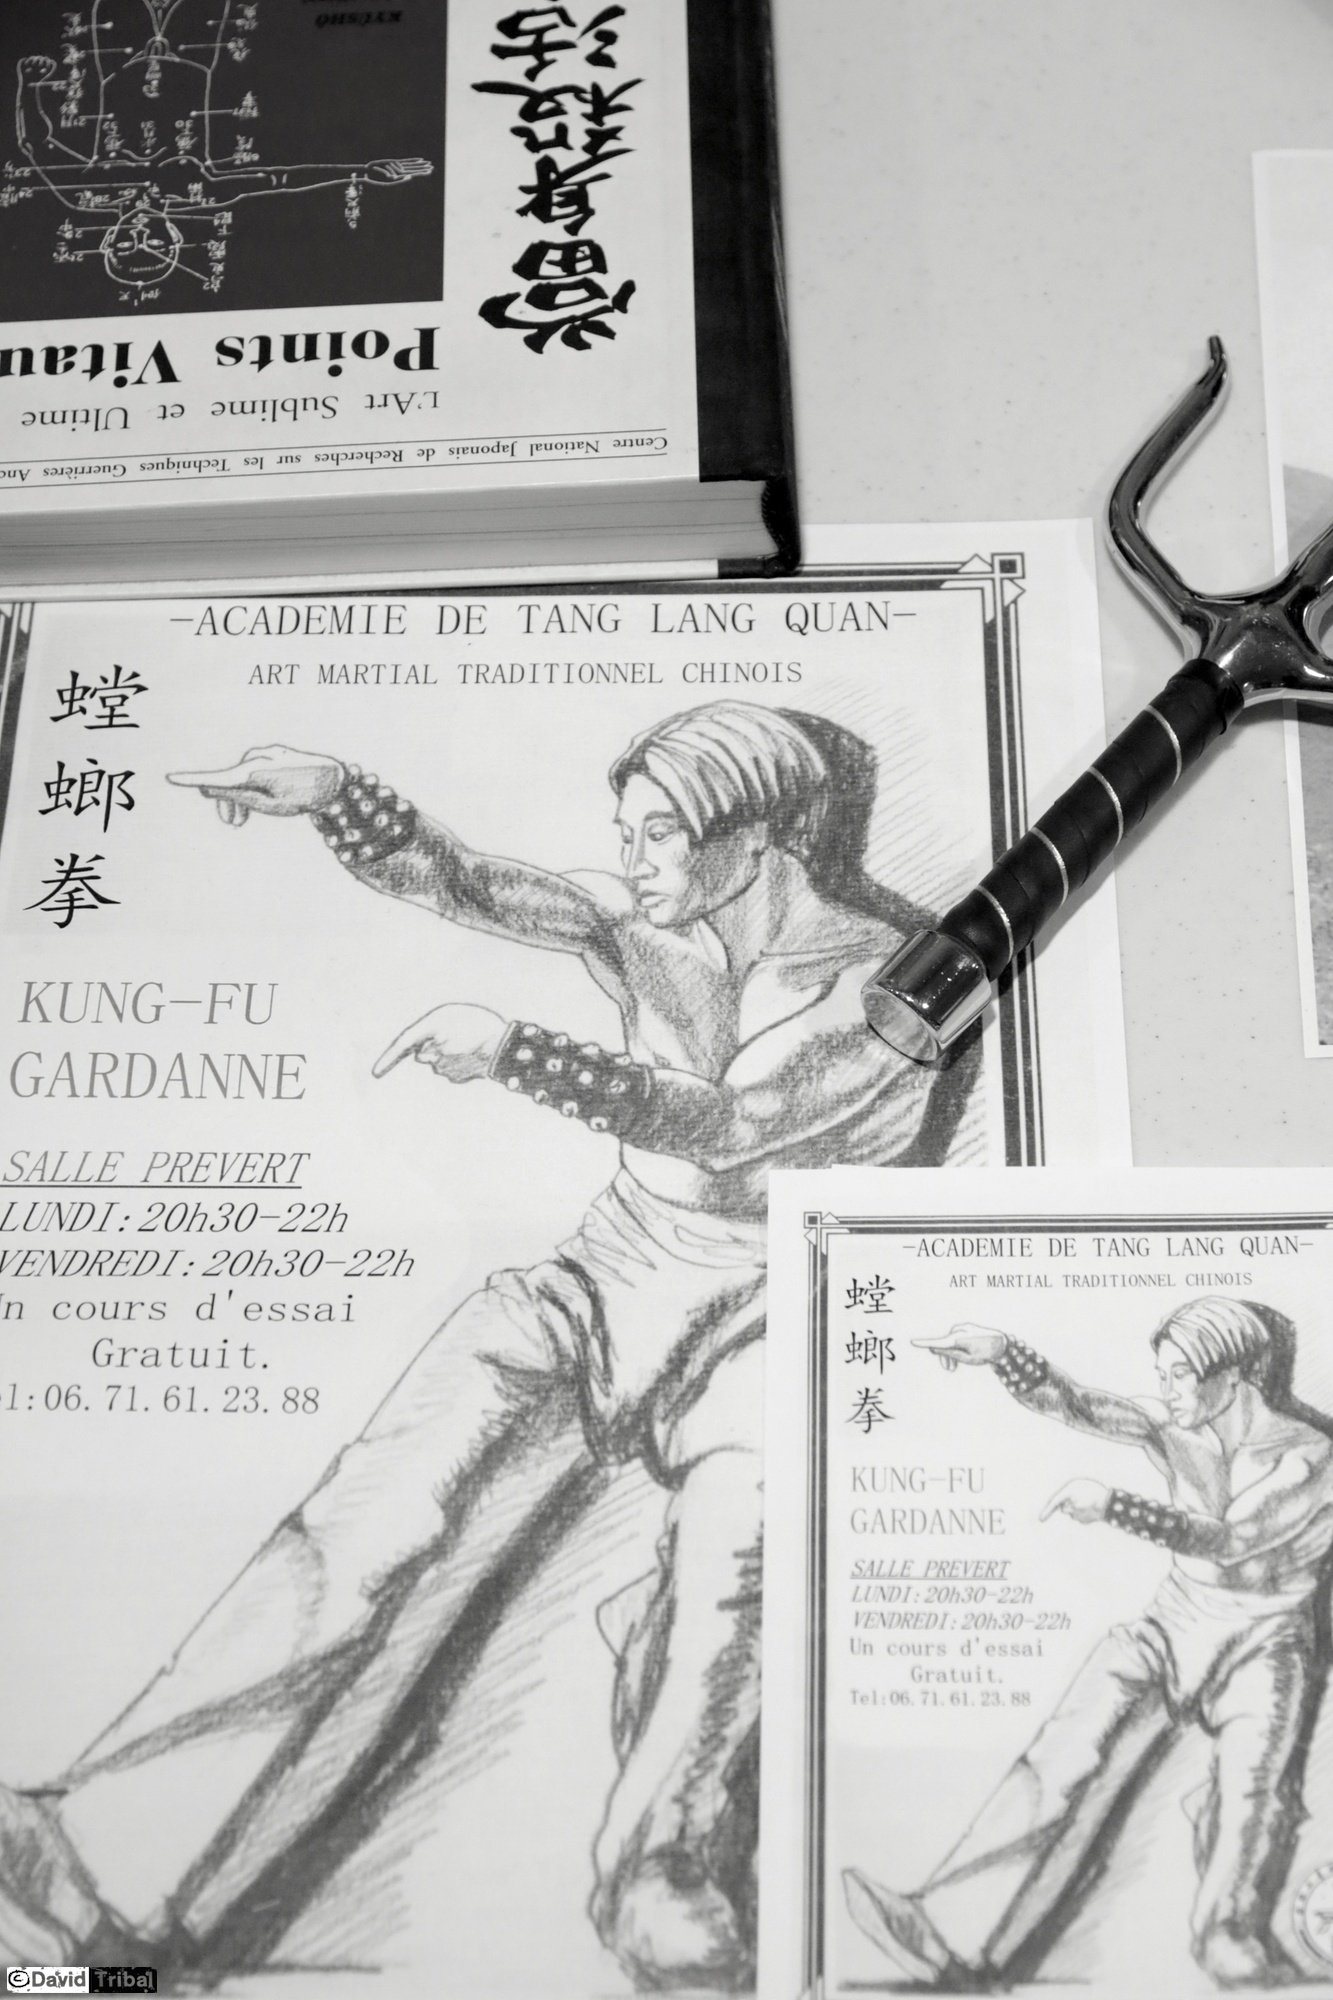 KYUSHO
當身殺活
Points
L'Art Sublime et Ultime
Centre National Japonais de Recherches sur les Techniques Guerrières
-ACADEMIE DE TANG LANG QUAN-
ART MARTIAL TRADITIONNEL CHINOIS
螳
螂
拳
KUNG-FU
GARDANNE
SALLE PREVERT
LUNDI:20h30-22h
VENDREDI:20h30-22h
Un cours d'essai
Gratuit.
Tel:06.71.61.23.88
-ACADEMIE DE TANG LANG QUAN-
ART MARTIAL TRADITIONNEL CHINOIS
螳
螂
拳
KUNG-FU
GARDANNE
SALLE PREVERT
LUNDI:20h30-22h
VENDREDI:20h30-22h
Un cours d'essai
Gratuit.
Tel:06.71.61.23.88
©David Tribal